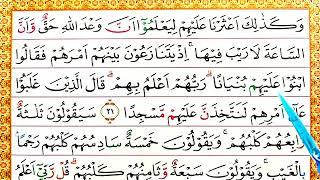 وَكَذٰلِكَ اَعْثَرْنَا عَلَيْهِمْ لِيَعْلَمُوْٓا اَنَّ وَعْدَ اللّٰهِ حَقٌّ وَّاَنَّ
السَّاعَةَ لَا رَيْبَ فِيْهَا ۚ اِذْ يَتَنَازَعُوْنَ بَيْنَهُمْ اَمْرَهُمْ فَقَالُوا
ابْنُوْا عَلَيْهِمْ بُنْيَانًا ؕ رَبُّهُمْ اَعْلَمُ بِهِمْ ؕ قَالَ الَّذِيْنَ غَلَبُوْا
عَلٰٓى اَمْرِهِمْ لَنَتَّخِذَنَّ عَلَيْهِمْ مَّسْجِدًا ﴿۲۱﴾ سَيَقُوْلُوْنَ ثَلٰثَةٌ
رَّابِعُهُمْ كَلْبُهُمْ ۚ وَيَقُوْلُوْنَ خَمْسَةٌ سَادِسُهُمْ كَلْبُهُمْ رَجْمًۢا
بِالْغَيْبِ ۚ وَيَقُوْلُوْنَ سَبْعَةٌ وَّثَامِنُهُمْ كَلْبُهُمْ ؕ قُلْ رَّبِّيْٓ اَعْلَمُ